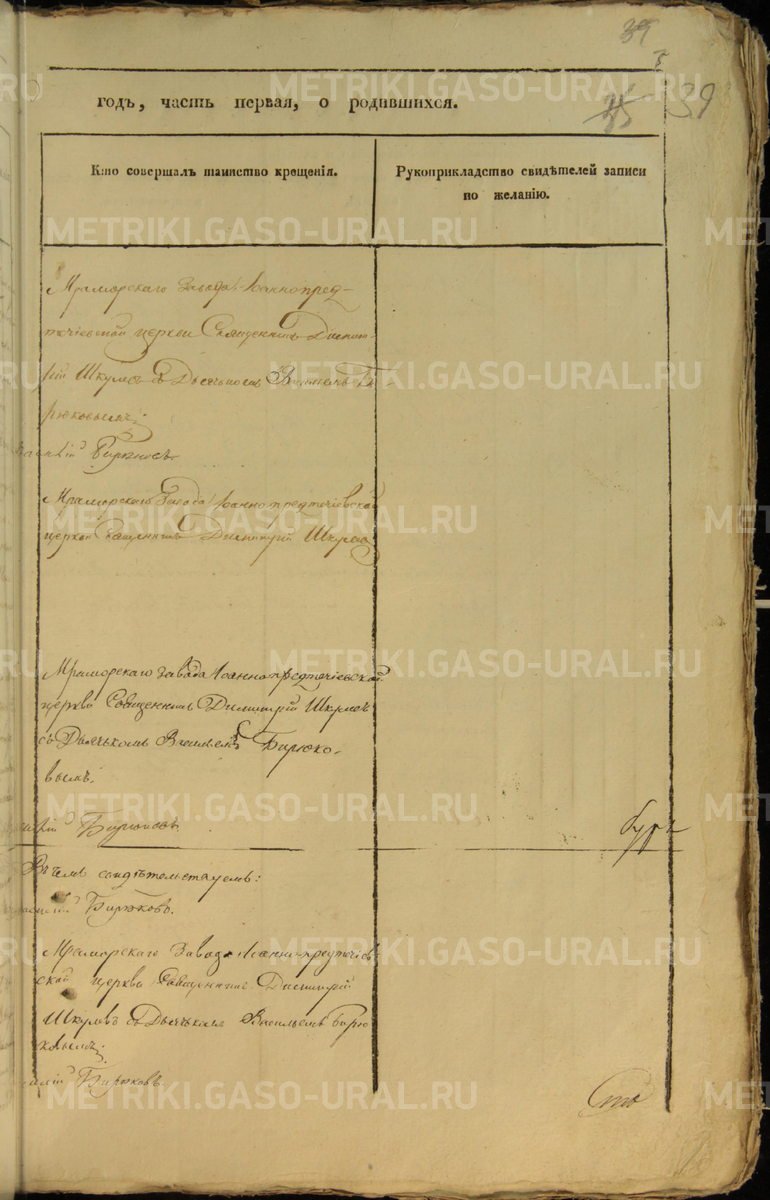 39
39
годъ, часть первая, о родившихся.
Кто совершалъ таинство крещенія.
Рукоприкладство свидѣтелей записи
по желанію.
Мраморскаго Завода Іоаннопред-
течіевской церкви Священникъ Димит-
рій Шкулевъ съ Дьячькомъ Васильемъ Би
рюковымъ;
Бирюковъ
Мраморскаго Завода Іоаннопредтечіевской
церкви Священникъ Димитрій Шкулев
Мраморскаго завода Іоаннопредтечіевской
церкви Священникъ Димитрій Шкулевъ
съ Дьячькомъ Васильемъ Бирюко-
вымъ.
Бирюковъ
Въ чемъ свидѣтельствуемъ:
Бирюковъ.
Мраморскаго Завода Іоанно-предтечіев-
ской церкви Священникъ Димитрій
Шкулевъ съ Дьячькомъ Васильемъ Бирю
ковымъ;
Бирюковъ
METRIKI.GASO-URAL.RU